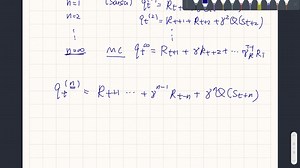 n=1 (Sarsa) q_t^(1) = R_t+1
n=2 q_t^(2) = R_t+1 + R_t+2 + γ²Q(S_t+2)
n=∞ MC q_t^∞ = R_t+1 + γR_t+2 + ... γ^T-1 R_T
q_t^(n) = R_t+1 ... + γ^n-1 R_t-n + γ^n Q(S_t+n)